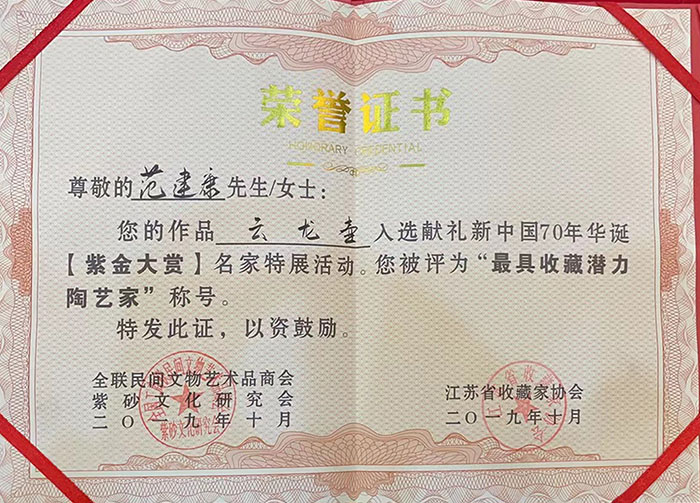 荣誉证书
HONORARY CREDENTIAL
尊敬的范建康先生/女士：
您的作品云龙壶入选献礼新中国70年华诞
【紫金大赏】名家特展活动。您被评为“最具收藏潜力
陶艺家”称号。
特发此证，以资鼓励。
全联民间文物艺术品商会
紫砂文化研究会
二〇一九年十月
江苏省收藏家协会
二〇一九年十月